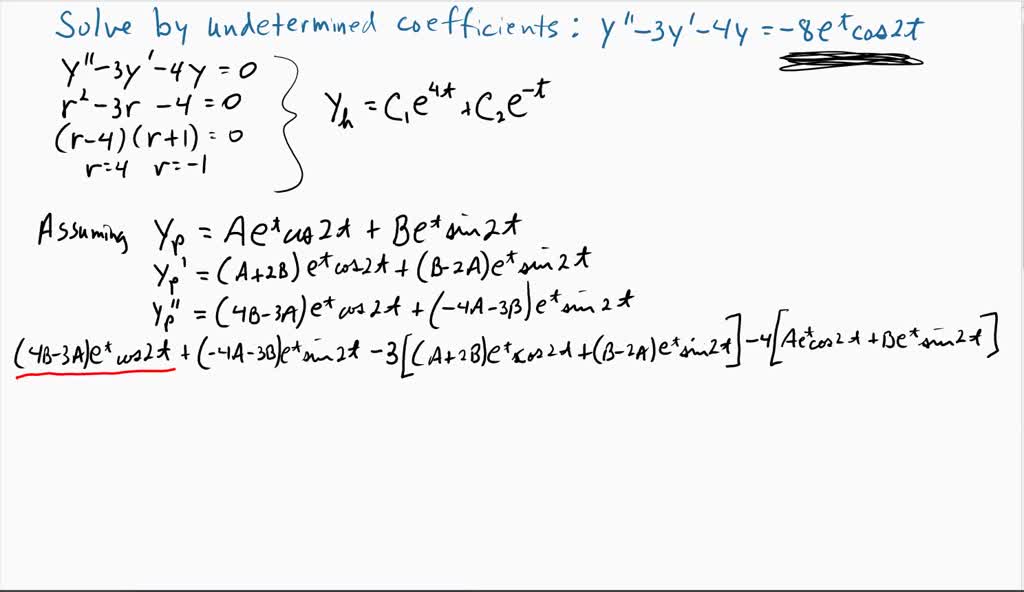 Solve by undetermined coefficients: y''-3y'-4y = -8e^t cos2t
y''-3y'-4y=0
r²-3r-4=0
(r-4)(r+1)=0
r=4 r=-1
y_h = C₁e^{4t}+C₂e^{-t}
Assuming y_p = Ae^t cos2t + Be^t sin2t
y_p' = (A+2B)e^t cos2t+(B-2A)e^t sin2t
y_p'' = (4B-3A)e^t cos2t+(-4A-3B)e^t sin2t
(4B-3A)e^t cos2t+(-4A-3B)e^t sin2t-3[(A+2B)e^t cos2t+(B-2A)e^t sin2t]-4[Ae^t cos2t+Be^t sin2t]